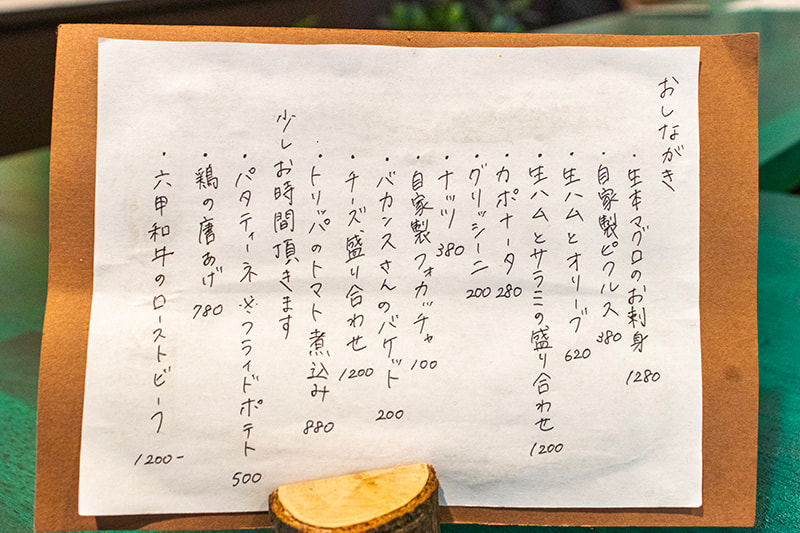 おしながき
・生本マグロのお刺身 1280
・自家製ピクルス 380
・生ハムとオリーブ 620
・生ハムとサラミの盛り合わせ 1200
・カポナータ 280
・グリッシーニ 200
・ナッツ 380
・自家製フォカッチャ 100
・バカンスさんのバゲット 200
・チーズ盛り合わせ 1200
・トリッパのトマト煮込み 880
少しお時間頂きます
・パタティーネ ※フライドポテト 500
・鶏の唐あげ 780
・六甲和牛のローストビーフ 1200-